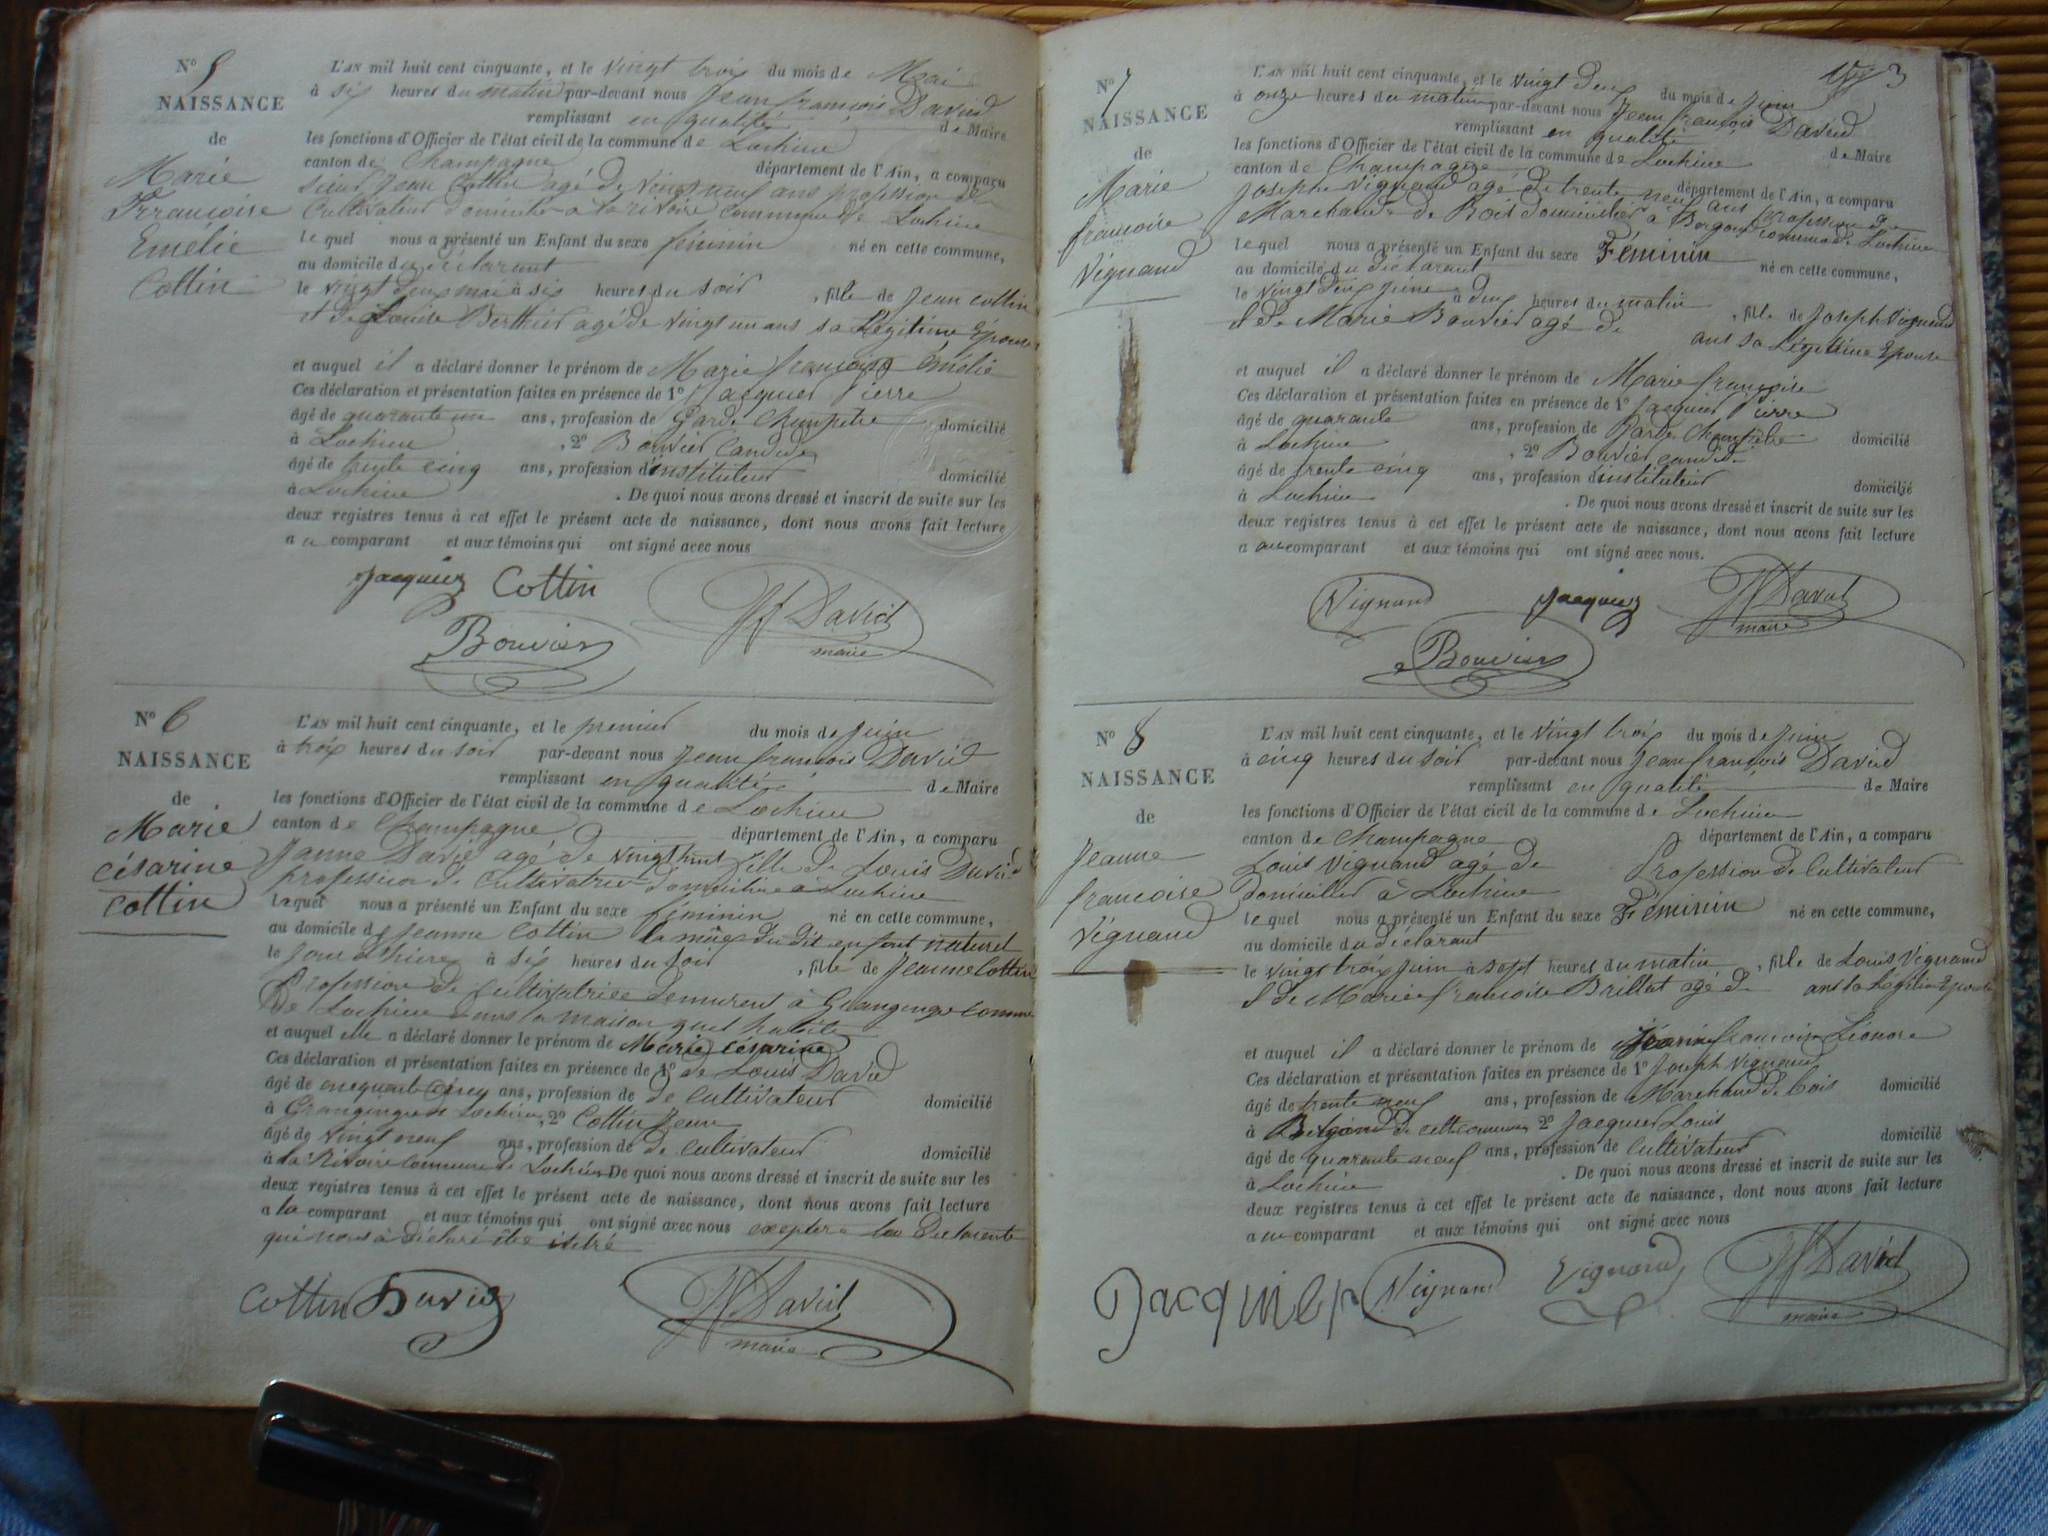 N° 5
NAISSANCE
de
Marie
Françoise
Emélie
Cottin
L'AN mil huit cent cinquante, et le vingt trois du mois de Mai
à six heures du matin par-devant nous Jean françois David
remplissant en qualité de Maire
les fonctions d'Officier de l'état civil de la commune de Lochieu
canton de Champagne département de l'Ain, a comparu
sieur Jean Cottin agé de vingt neuf ans profession de
Cultivateur domicilié à la rivoire commune de Lochieu
lequel nous a présenté un Enfant du sexe féminin né en cette commune,
au domicile du déclarant
le vingt deux mai à six heures du soir, fille de Jean Cottin
et de Louise Berthier agé de vingt un ans sa Légitime Epouse
et auquel il a déclaré donner le prénom de Marie françoise Emélie
Ces déclaration et présentation faites en présence de 1° Jacquier Pierre
âgé de quarante un ans, profession de Garde Champetre domicilié
à Lochieu, 2° Bouvier Candide
âgé de trente cinq ans, profession d'instituteur domicilié
à Lochieu. De quoi nous avons dressé et inscrit de suite sur les
deux registres tenus à cet effet le présent acte de naissance, dont nous avons fait lecture
au comparant et aux témoins qui ont signé avec nous
Jacquier Cottin JF David
Bouvier maire
N° 6
NAISSANCE
de
Marie
césarine
Cottin
L'AN mil huit cent cinquante, et le premier du mois de juin
à trois heures du soir par-devant nous Jean françois David
remplissant en qualité de Maire
les fonctions d'Officier de l'état civil de la commune de Lochieu
canton de Champagne département de l'Ain, a comparu
Janne David agé de vingt huit fille de Louis David
profession de Cultivatrice domicilié à Lochieu
laquel nous a présenté un Enfant du sexe féminin né en cette commune,
au domicile de Jeanne Cottin la mère du dit enfant naturel
le jour d'hiere à six heures du soir, fille de Jeanne Cottin
Profession de Cultivatrice demeurent à commune
de Lochieu dans la maison quel habite
et auquel elle a déclaré donner le prénom de Marie césarine
Ces déclaration et présentation faites en présence de 1° de Louis David
âgé de cinq ans, profession de de Cultivateur domicilié
à Lochieu, 2° Cottin Jean
âgé de vingt neuf ans, profession de de cultivateur domicilié
à la Rivoire commune de Lochieu De quoi nous avons dressé et inscrit de suite sur les
deux registres tenus à cet effet le présent acte de naissance, dont nous avons fait lecture
a la comparant et aux témoins qui ont signé avec nous la Déclarente
qui nous à déclaré être
Cottin David JF David
maire
3
N° 7
NAISSANCE
de
Marie
françoise
Vignand
L'AN mil huit cent cinquante, et le vingt deux du mois de juin
à onze heures du matin par-devant nous Jean françois David
remplissant en qualité de Maire
les fonctions d'Officier de l'état civil de la commune de Lochieu
canton de Champagne département de l'Ain, a comparu
Joseph Vignand agé de trente neuf ans profession de
Marchand de Bois domicilié à commune de Lochieu
lequel nous a présenté un Enfant du sexe Féminin né en cette commune,
au domicile du déclarant
le vingt deux juin à deux heures du matin, fille de Joseph Vignand
et de Marie Bouvier agé de ans sa Légitime Epouse
et auquel il a déclaré donner le prénom de Marie françoise
Ces déclaration et présentation faites en présence de 1° Jacquier Pierre
âgé de quarante ans, profession de Garde Champêtre domicilié
à Lochieu, 2° Bouvier candide
âgé de trente cinq ans, profession d'instituteur domicilié
à Lochieu. De quoi nous avons dressé et inscrit de suite sur les
deux registres tenus à cet effet le présent acte de naissance, dont nous avons fait lecture
a au comparant et aux témoins qui ont signé avec nous.
Vignand Jacquier JF David
Bouvier maire
N° 8
NAISSANCE
de
Jeanne
françoise
Vignand
L'AN mil huit cent cinquante, et le vingt trois du mois de juin
à cinq heures du soir par-devant nous Jean françois David
remplissant en qualité de Maire
les fonctions d'Officier de l'état civil de la commune de Lochieu
canton de Champagne département de l'Ain, a comparu
Louis Vignand agé de Profession de Cultivateur
Domicillié à Lochieu
lequel nous a présenté un Enfant du sexe Féminin né en cette commune,
au domicile du déclarant
le vingt trois juin à sept heures du matin, fille de Louis Vignand
et de Marie françoise Brillat agé de ans sa Legitim Epouse
et auquel il a déclaré donner le prénom de françoise Léonore
Ces déclaration et présentation faites en présence de 1° Joseph Vignand
âgé de trente neuf ans, profession de Marchand de bois domicilié
à de cette commune, 2° Jacquier Louis
âgé de quarante neuf ans, profession de Cultivateur domicilié
à Lochieu. De quoi nous avons dressé et inscrit de suite sur les
deux registres tenus à cet effet le présent acte de naissance, dont nous avons fait lecture
au comparant et aux témoins qui ont signé avec nous
Jacquier Vignand Vignand JF David
maire